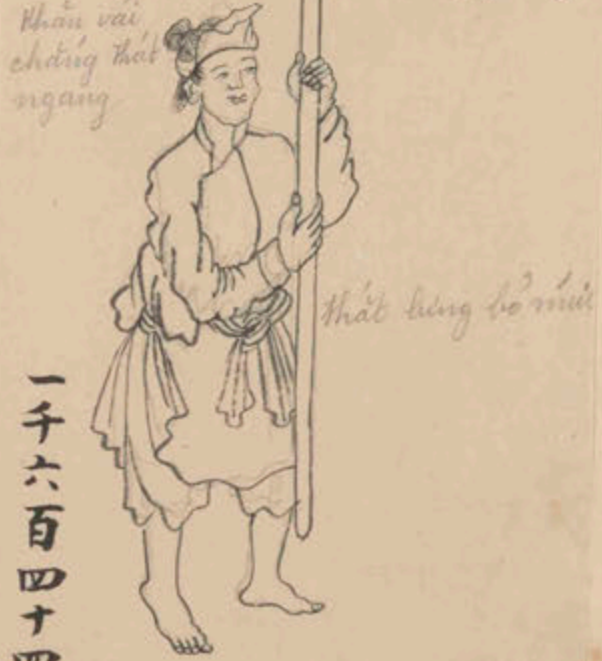 Khăn vải
chống thắt
ngang
thắt lưng bỏ múi
一千六百四十四